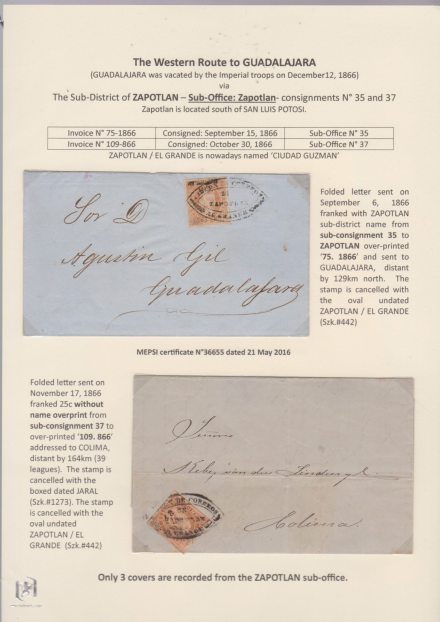 The Western Route to GUADALAJARA
(GUADALAJARA was vacated by the Imperial troops on December12, 1866)
via
The Sub-District of ZAPOTLAN – Sub-Office: Zapotlan- consignments N° 35 and 37
Zapotlan is located south of SAN LUIS POTOSI.
Invoice N° 75-1866 Consigned: September 15, 1866 Sub-Office N° 35
Invoice N° 109-866 Consigned: October 30, 1866 Sub-Office N° 37
ZAPOTLAN / EL GRANDE is nowadays named 'CIUDAD GUZMAN'
Sor D
Agustin Gil
Guadalajara
ZAPOTLAN
EL GRANDE
Folded letter sent on
September 6, 1866
franked with ZAPOTLAN
sub-district name from
sub-consignment 35 to
ZAPOTLAN over-printed
'75. 1866' and sent to
GUADALAJARA, distant
by 129km north. The
stamp is cancelled with
the oval undated
ZAPOTLAN / EL GRANDE
(Szk.#442)
MEPSI certificate N°36655 dated 21 May 2016
Folded letter sent on
November 17, 1866
franked 25c without
name overprint from
sub-consignment 37 to
over-printed '109. 866'
addressed to COLIMA,
distant by 164km (39
leagues). The stamp is
cancelled with the
boxed dated JARAL
(Szk.#1273). The stamp
is cancelled with the
oval undated
ZAPOTLAN / EL
GRANDE (Szk.#442)
Colima
Only 3 covers are recorded from the ZAPOTLAN sub-office.